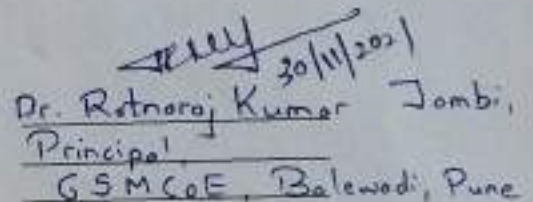 30/11/2021
Dr. Ratnaraj Kumar Jambi,
Principal,
GSMCoE, Balewadi, Pune